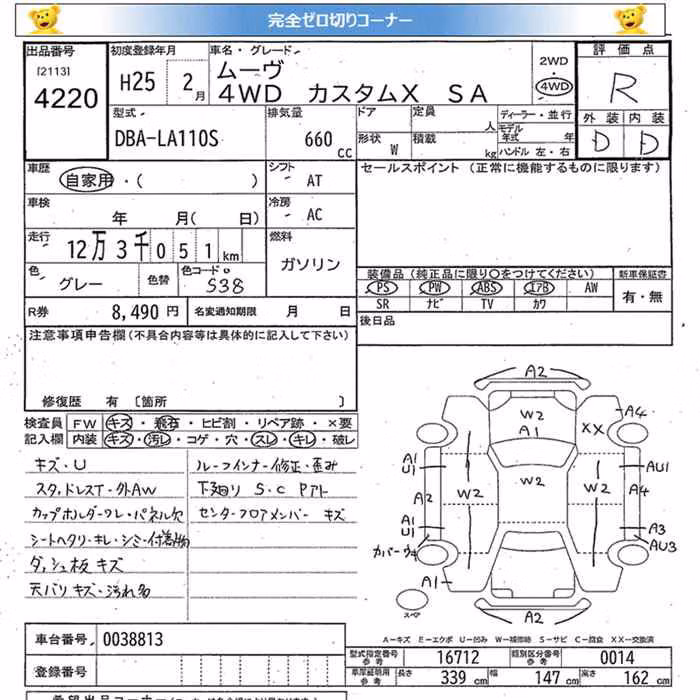 完全ゼロ切りコーナー
出品番号 初度登録年月 車名・グレード 2WD・4WD 評価点
[2113] 4220 H25 2月 ムーヴ R
4WD カスタムX SA
型式 排気量 ドア 定員 人 ディーラー・並行 外装 内装
DBA-LA110S 660 CC 形状 W 積載 kg モデル年式 年 ハンドル 左・右 D D
車歴 シフト セールスポイント (正常に機能するものに限ります)
自家用・( ) AT
車検 冷房
年 月(日) AC
走行 燃料
12万3千051km ガソリン
色 グレー 色替 色コード S38
装備品(純正品に限り○をつけてください) 新車保証書
PS PW ABS エアB AW 有・無
SR ナビ TV カワ
R券 8,490円 名変通知期限 月 日 後日品
注意事項申告欄(不具合内容等は具体的に記入して下さい)
修復歴 有 [箇所 ]
検査員 FW キズ・飛石・ヒビ割・リペア跡・×要
記入欄 内装 キズ・汚レ・コゲ・穴・スレ・キレ・破レ
キズ・U ルーフインナー修正・歪み
スタッドレスT・外AW 下廻り S・C Pアト
カップホルダーワレ・パネル欠 センターフロアメンバー キズ
シートヘタリ・キレ・シミ・付着物
ダッシュ板キズ
天バリキズ・汚れ多
A2
W2
A1
XX
A4
A1
U1
AU1
A2
W2
W2
W2
A4
A1
U1
A3
カバーワレ
AU3
A1
スペア
A2
A−キズ E−エクボ U−凹み W−補修跡 S−サビ C−腐食 XX−交換済
車台番号 0038813
登録番号
型式指定番号 参考 16712 類別区分番号 参考 0014
車庫証明用 参考 長さ 339 cm 幅 147 cm 高さ 162 cm